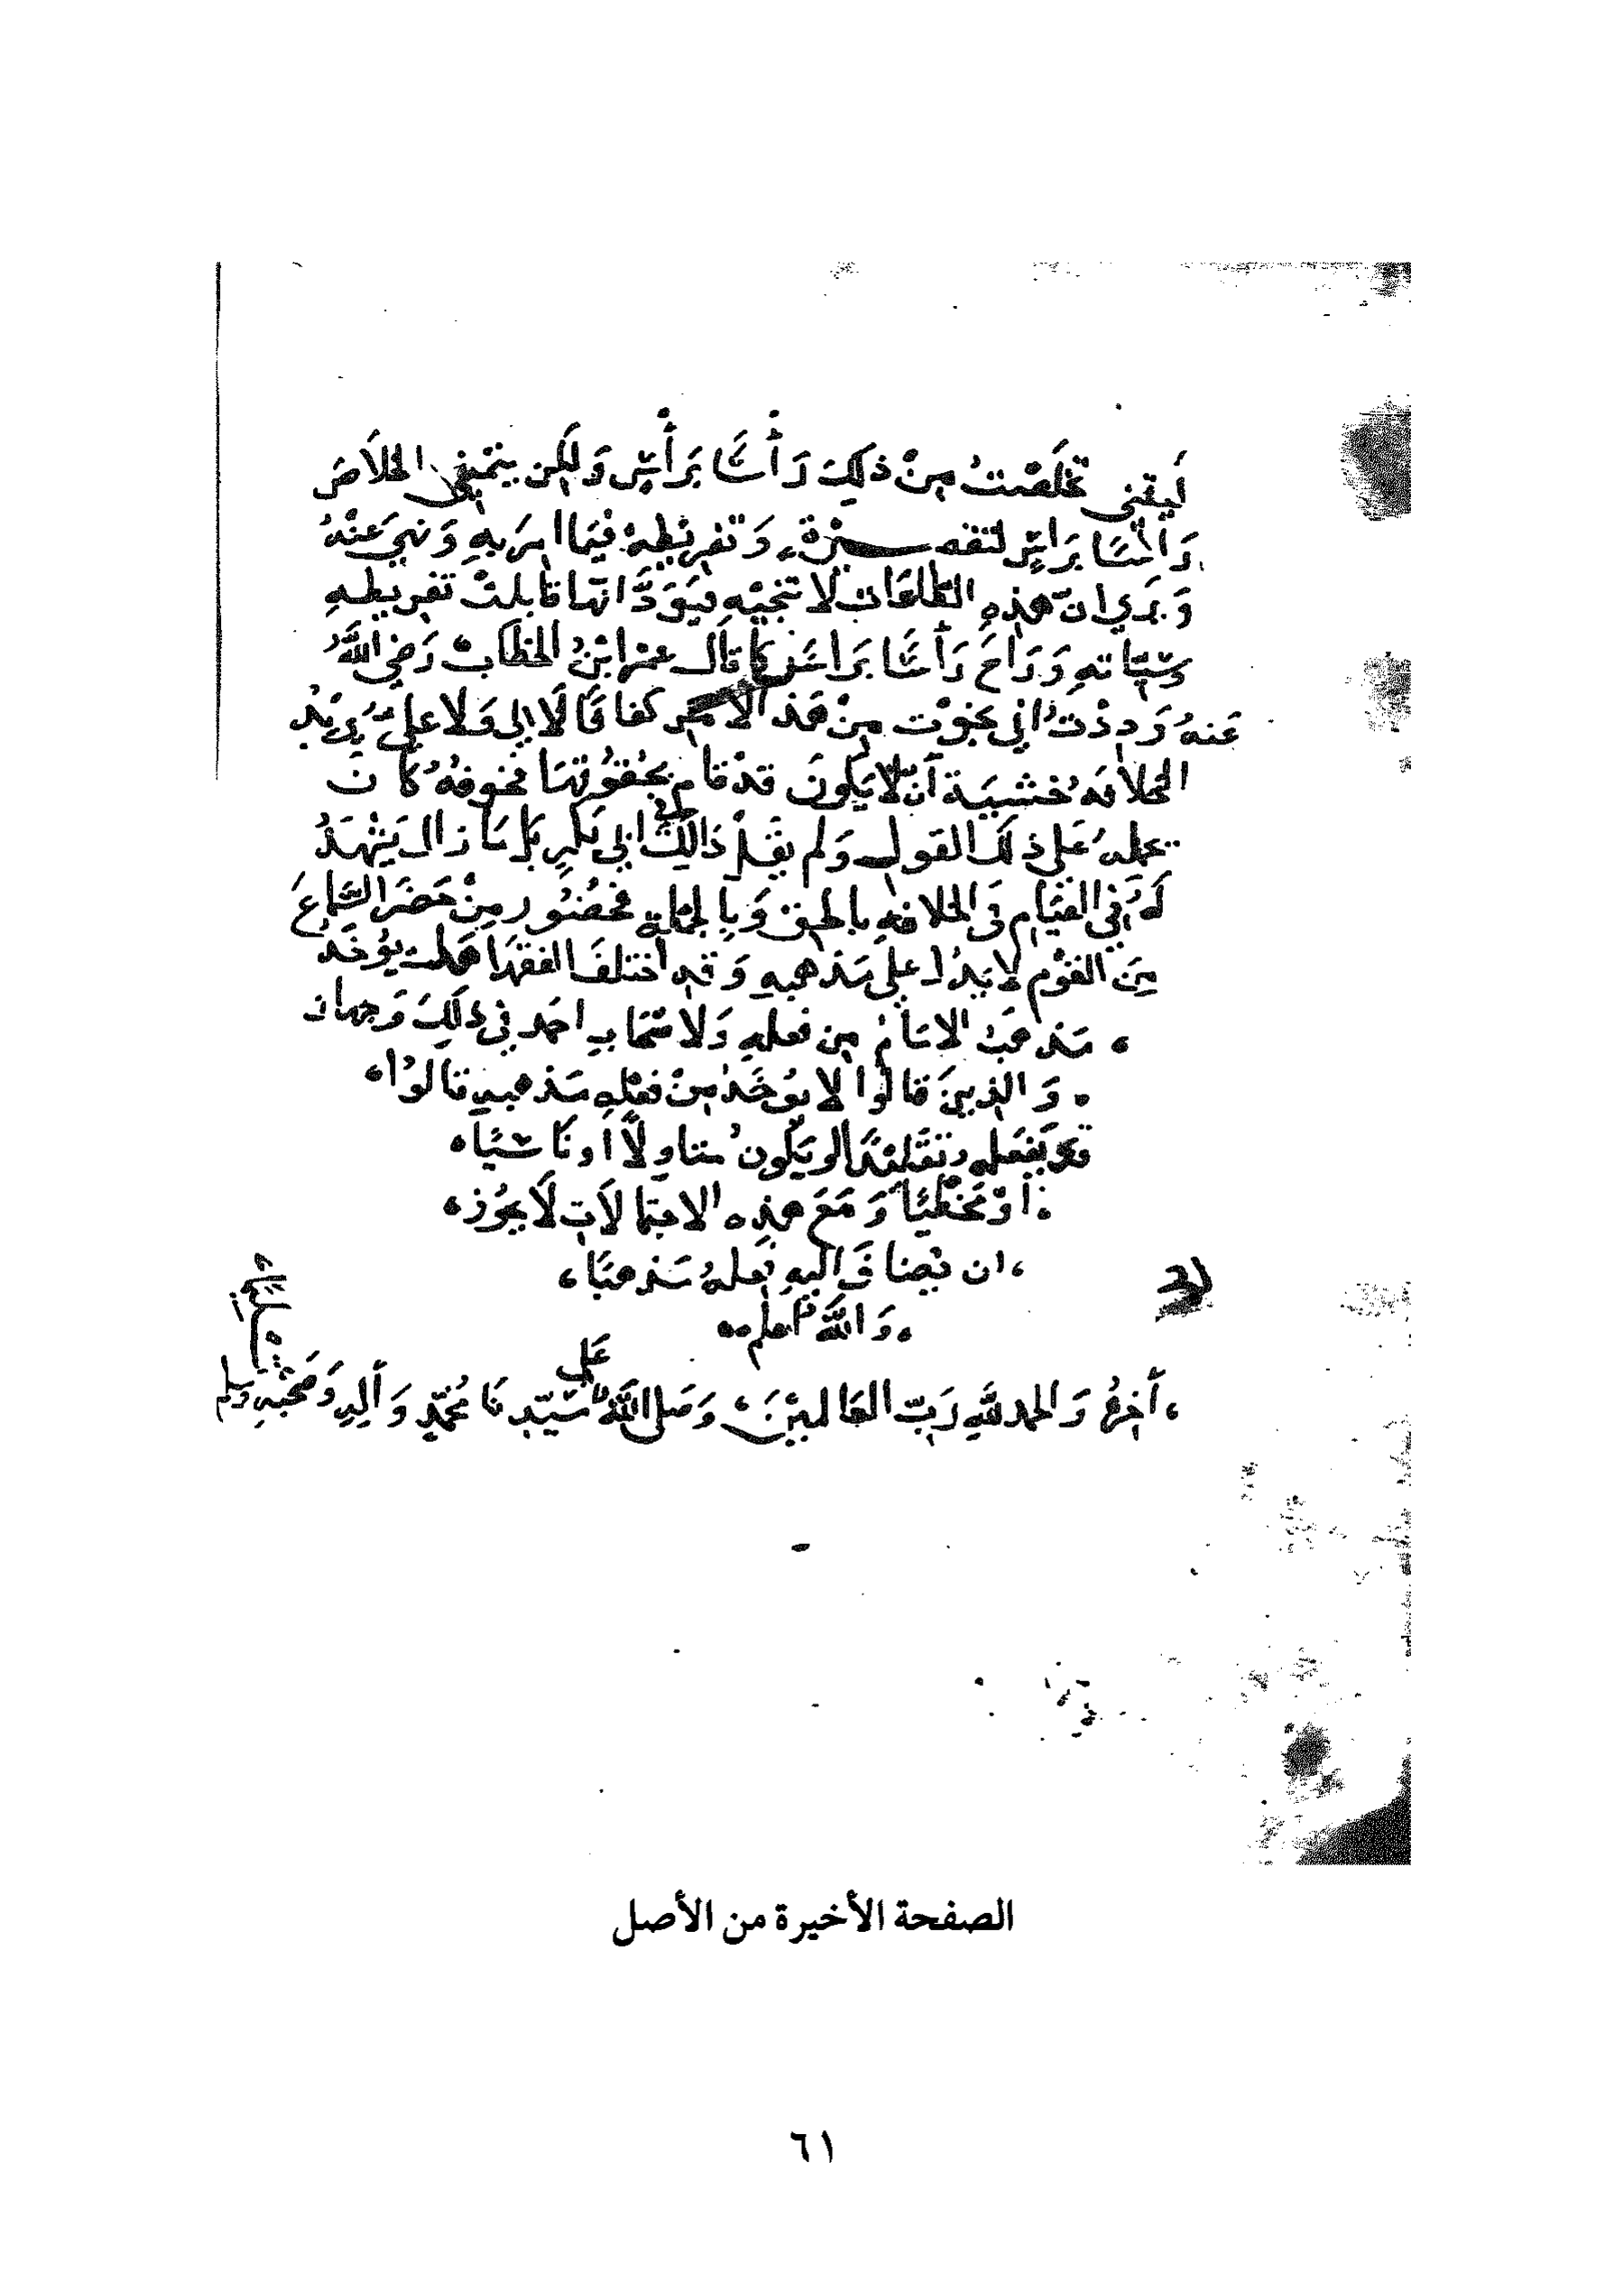 ليتني تخلصت من ذلك رأسًا برأسٍ ولكن يتمنى الخلاص
رأسًا برأس وتفريطه فيما امر به ونهي عنه
ويري ان هذه الطاعات لا تنجيه فيودّ انها قابلت تفريطه
سيّاته وراح رأسًا براس كما قال عمر ابن الخطاب رضي الله
عنه وددت اني نجوت من هذ الامر كفافا لا لي ولا علي يريد
الخلافه خشية أن لا يكون قد قام بحقوقها فخوفه كان
يحمله على ذلك القول ولم يقل ذالك ابي بكر بل ما زال يشهد
له في القيام في الخلافه بالحق وبالجملة فحضور من حضر السماع
من القوم لا يدل على مذهبه وقد اختلف الفقها هل يؤخذ
مذهب الامام من فعله ولاصحاب احمد في ذلك وجهان
والذين قالوا لا يؤخذ من فعله مذهبه قالوا
قد يفعله او يكون متاولًا او ناسيًا
أو مخطيًا ومع هذه الاحتمالات لا يجوز
ان يضاف اليه فعله مذهبًا
والله اعلم
آخره والحمد لله ربّ العالمين وصلى الله على سيّدنا محمّد وآله وصحبه وسلم
الصفحة الأخيرة من الأصل
٦١